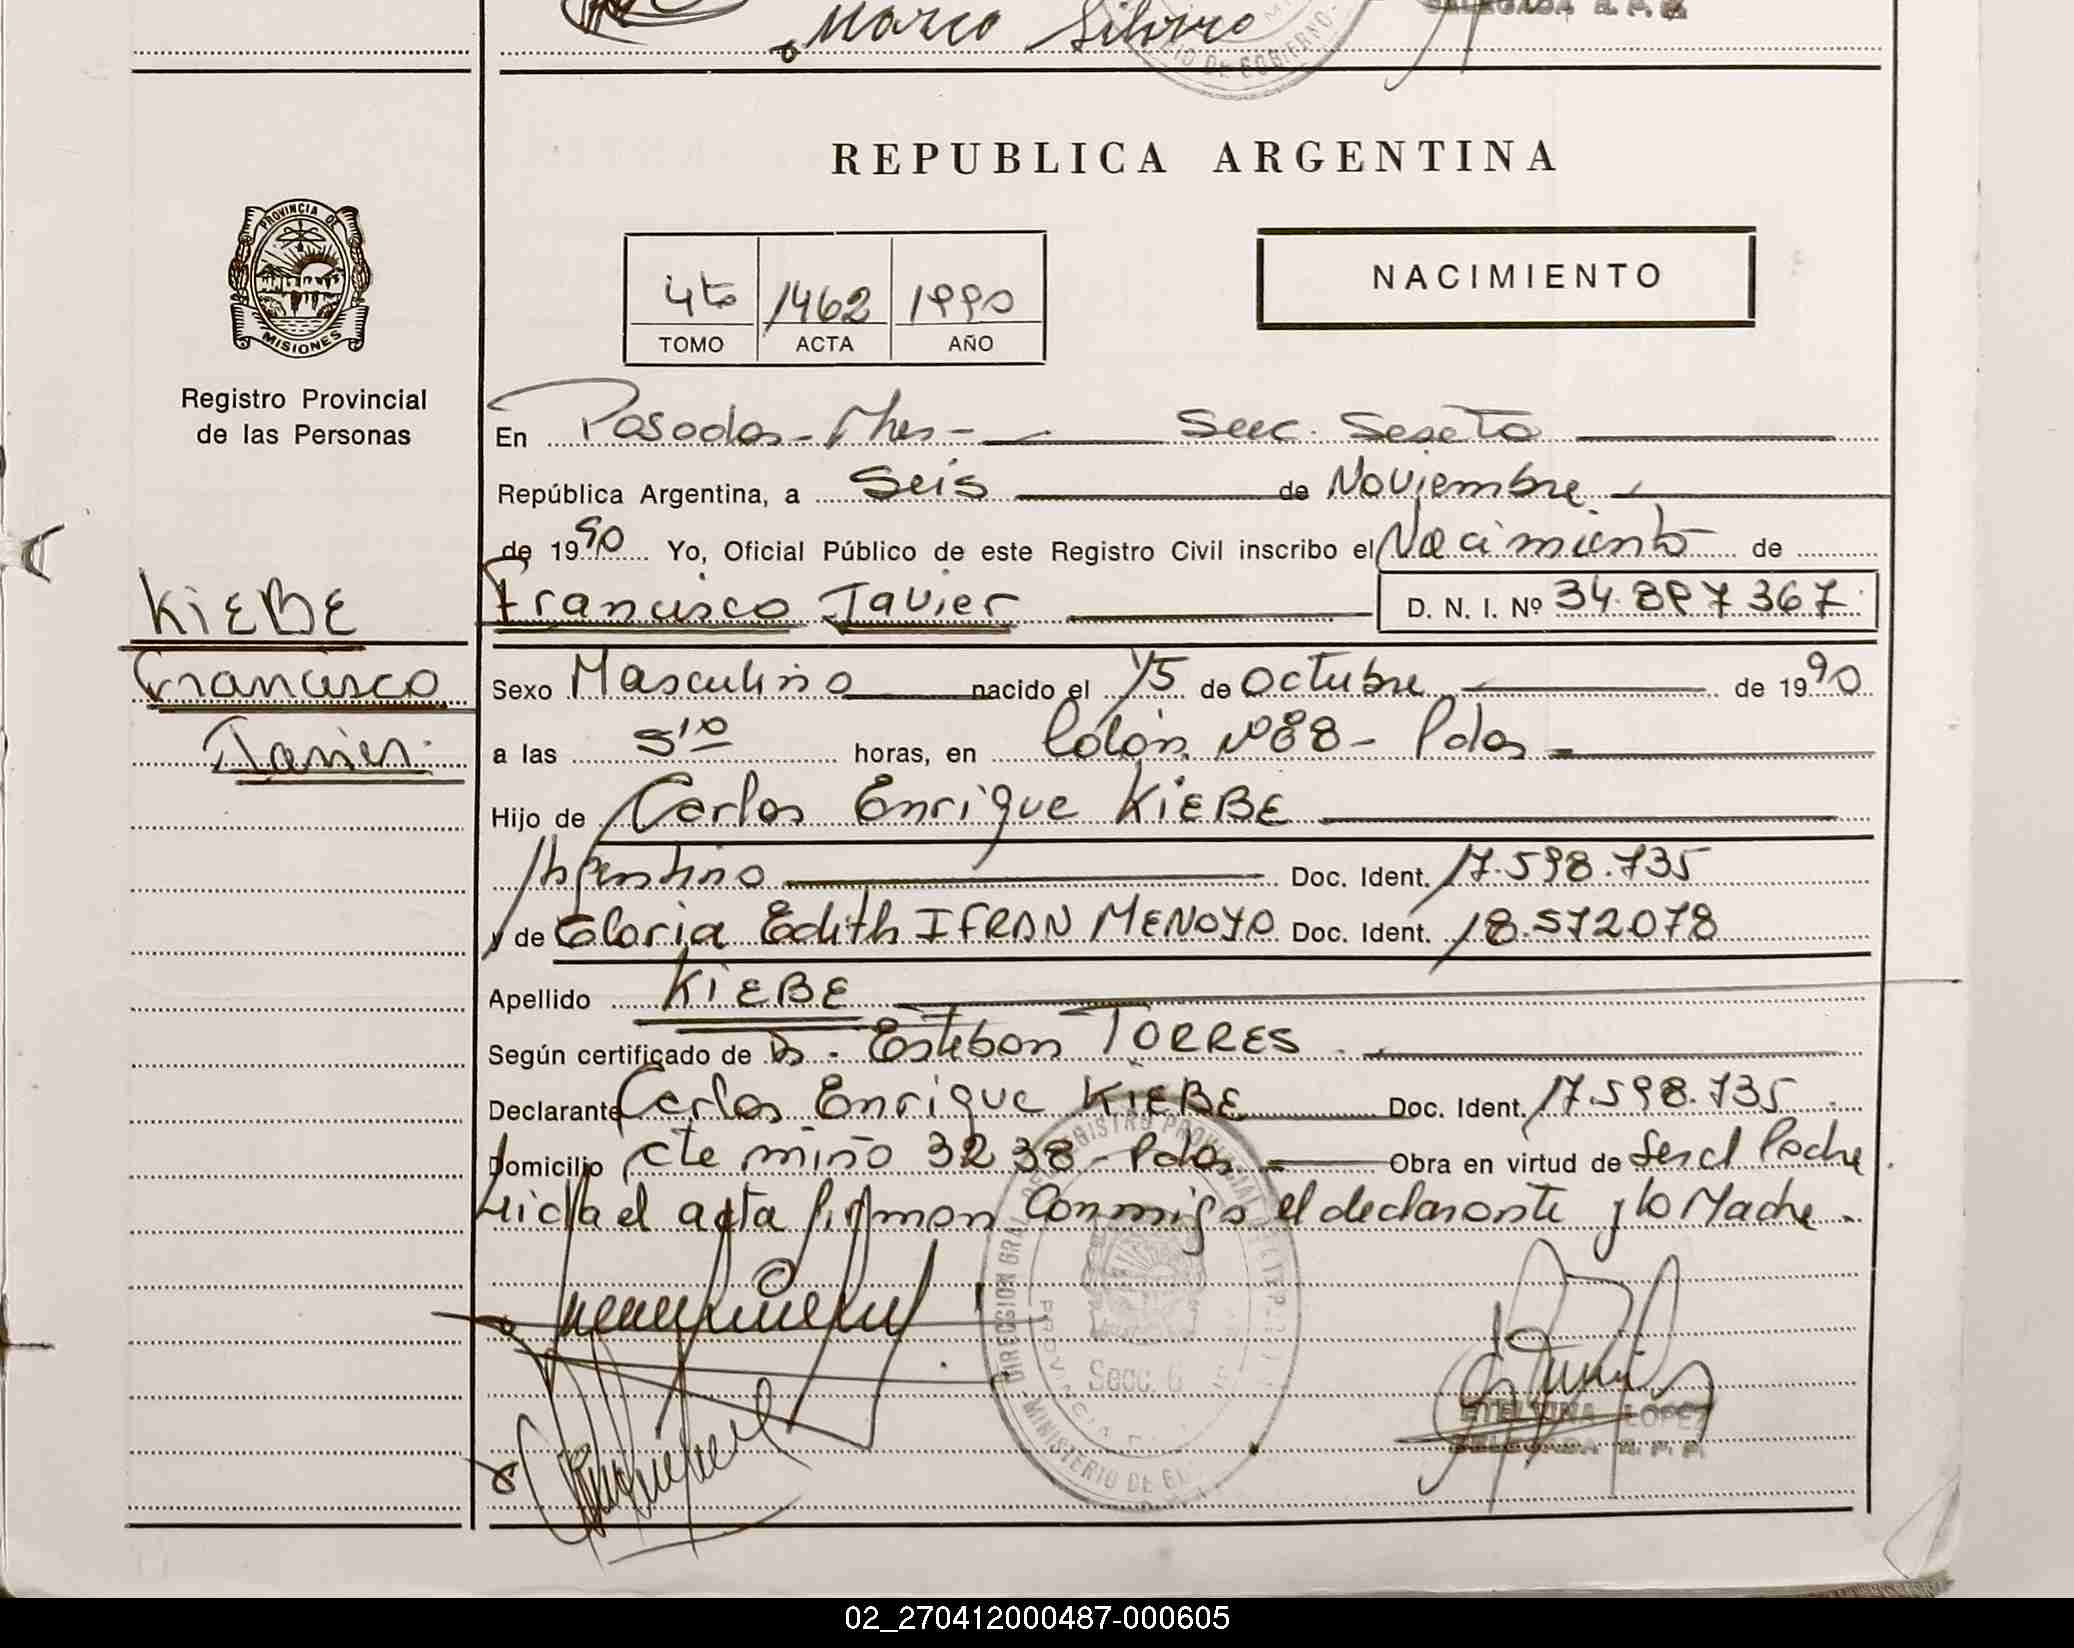 Marco Silvio
REPUBLICA ARGENTINA
PROVINCIA DE
MISIONES
Registro Provincial
de las Personas
4to 1462 1990
TOMO ACTA AÑO
NACIMIENTO
En Posadas - Mnes - Secc. Sexta
República Argentina, a Seis de Noviembre
de 1990 Yo, Oficial Público de este Registro Civil inscribo el Nacimiento de
KiEBE
Francisco
Javier
Francisco Javier D. N. I. Nº 34.897367
Sexo Masculino nacido el 15 de Octubre de 1990
a las 5:10 horas, en Colón Nº 88 - Pdas
Hijo de Carlos Enrique KiEBE
Argentino Doc. Ident. 17.598.735
y de Gloria Edith IFRAN MENOYO Doc. Ident. 18.572078
Apellido KiEBE
Según certificado de Dr. Esteban TORRES
Declarante Carlos Enrique KiEBE Doc. Ident. 17.598.735
Domicilio Cte miño 3238 - Pdas Obra en virtud de Ser el Padre
Leida el acta firman Conmigo el declarante y la Madre.
Secc. 6
MINISTERIO DE
LOPEZ
02_270412000487-000605